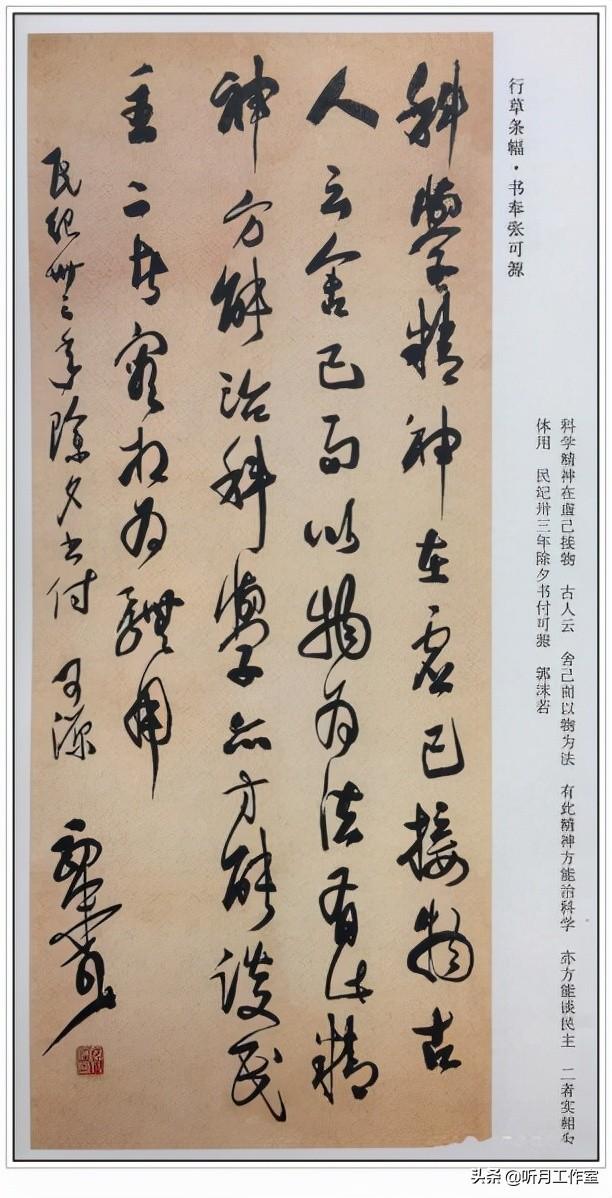 行草条幅·书奉张可源
科学精神在虚己接物 古人云 舍己而以物为法 有此精神方能治科学 亦方能谈民主 二者实相为
体用 民纪卅三年除夕书付可源 郭沫若
科學精神在虛己接物古
人云舍己而以物为法有此精
神方能治科學亦方能談民
主二者實相为體用
民纪卅三年除夕书付 可源 郭沫若
头条 @听月工作室